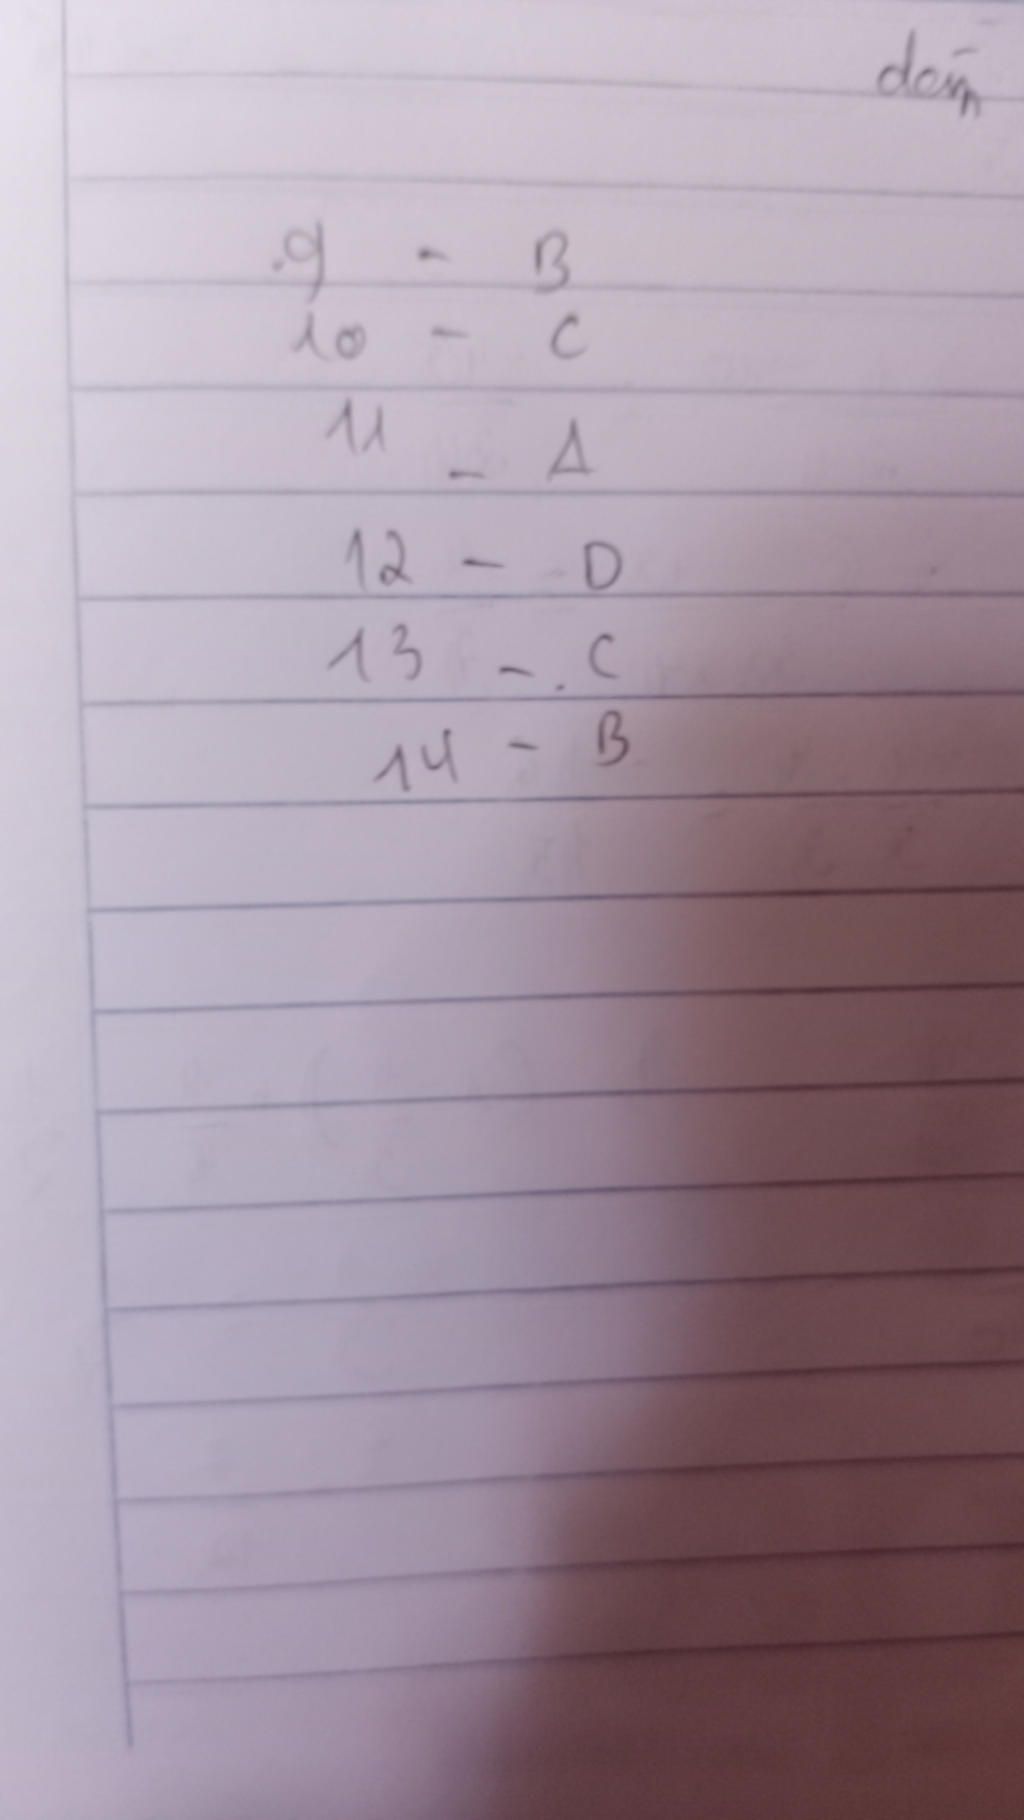 9 - B
10 - C
11 - A
12 - D
13 - C
14 - B